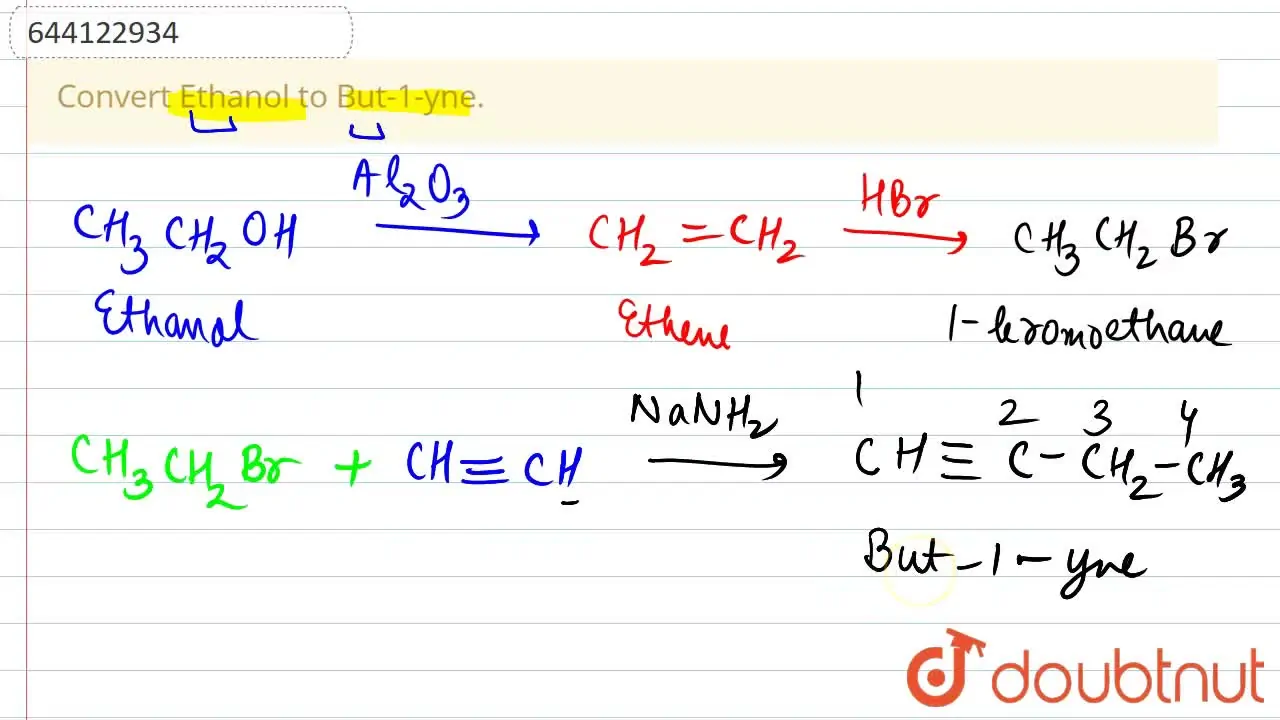 644122934
Convert Ethanol to But-1-yne.
CH₃ CH₂ OH Al₂O₃ → CH₂ = CH₂ HBr → CH₃ CH₂ Br
Ethanol Ethene 1-bromoethane
CH₃ CH₂ Br + CH ≡ CH NaNH₂ → CH ≡ C - CH₂ - CH₃
1 2 3 4
But-1-yne
doubtnut